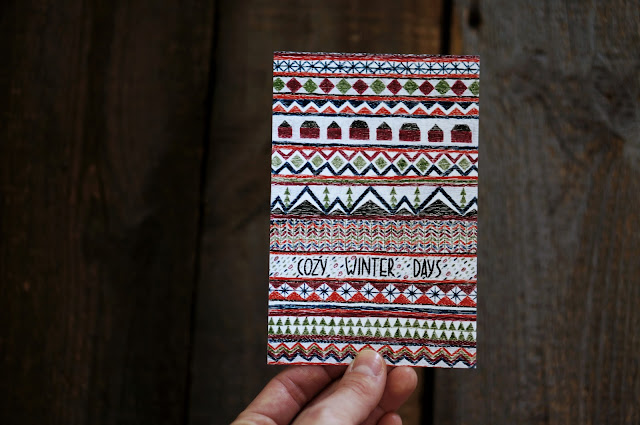 COZY WINTER DAYS